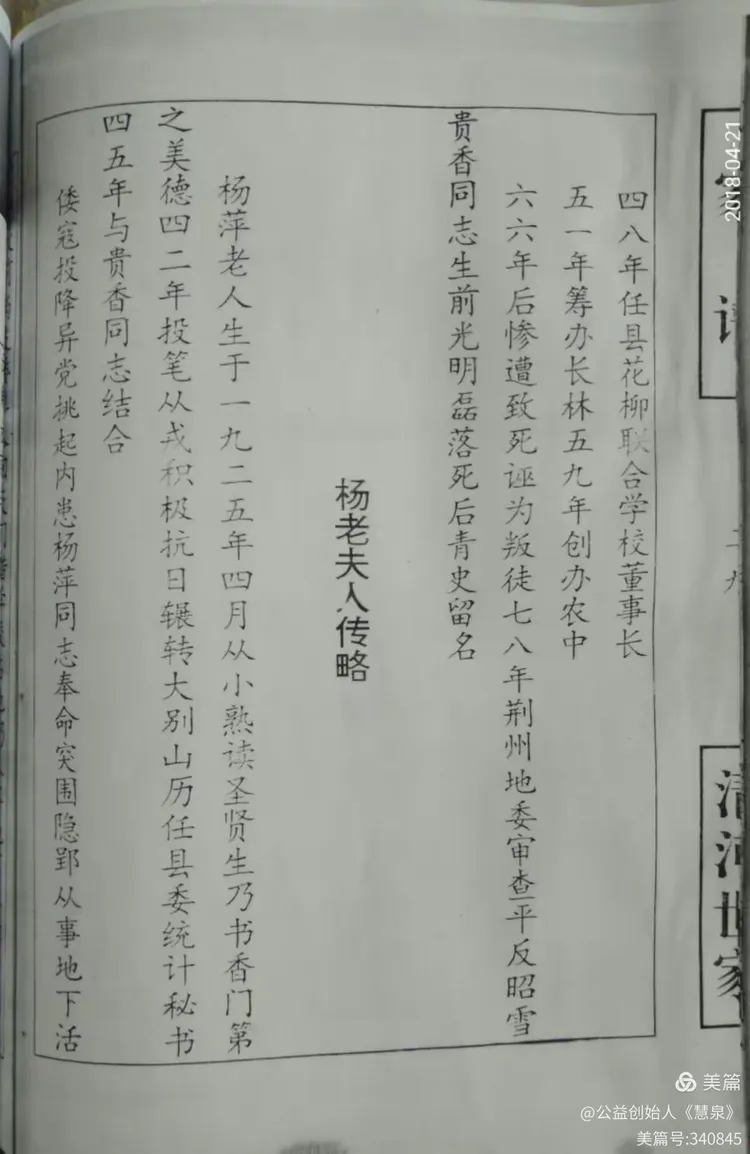 四八年任县花柳联合学校董事长
五一年筹办长林五九年创办农中
六六年后惨遭致死诬为叛徒七八年荆州地委审查平反昭雪
贵香同志生前光明磊落死后青史留名
杨老夫人传略
杨萍老人生于一九二五年四月从小熟读圣贤生乃书香门第
之美德四二年投笔从戎积极抗日辗转大别山历任县委统计秘书
四五年与贵香同志结合
倭寇投降异党挑起内患杨萍同志奉命突围隐郢从事地下活
清河世家
2018-04-21
美篇
@公益创始人《慧泉》
美篇号:340845